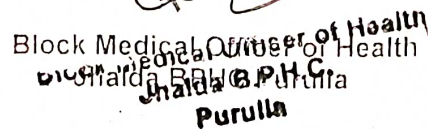 Block Medical Officer of Health
Block Medical Officer of Health
Jhalda BPHC, Purulia
Jhalda B.P.H.C.
Purulia